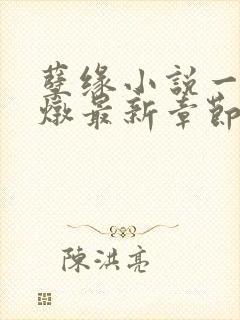 孽缘小說一
燉最新章節
陳洪亮